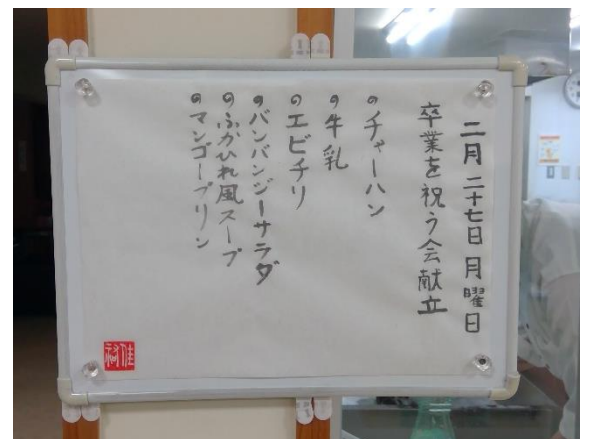 二月二十七日月曜日
卒業を祝う会献立
チャーハン
牛乳
エビチリ
バンバンジーサラダ
ふかひれ風スープ
マンゴープリン